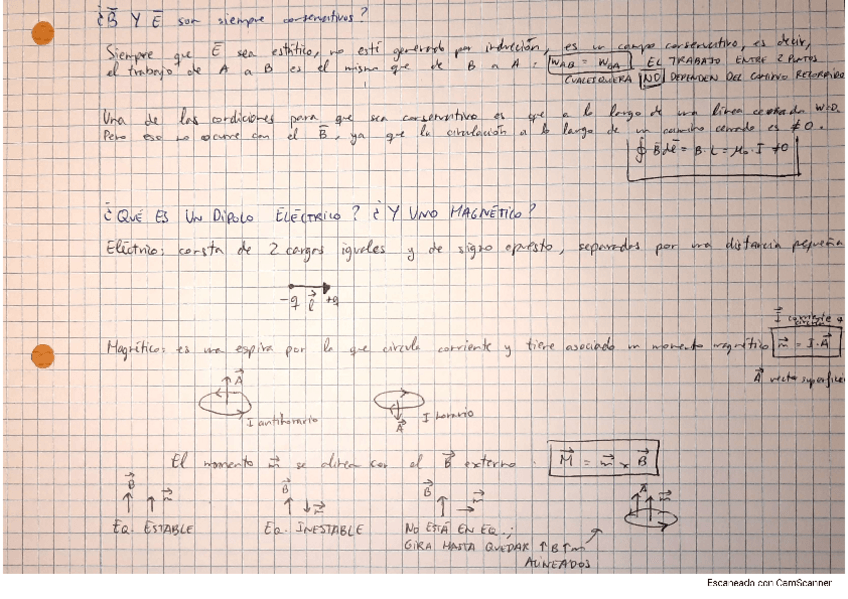 ¿B⃗ Y E⃗ son siempre conservativos?
Siempre que E⃗ sea estático, no esté generado por inducción, es un campo conservativo, es decir,
el trabajo de A a B es el mismo que de B a A: W_AB = W_BA. EL TRABAJO ENTRE 2 PUNTOS
CUALESQUIERA NO DEPENDEN DEL CAMINO RECORRIDO
Una de las condiciones para que sea conservativo es que a lo largo de una línea cerrada W=0.
Pero eso no ocurre con el B⃗, ya que la circulación a lo largo de un camino cerrado es ≠0.
∮ B⃗ dl⃗ = B·L = μ₀·I ≠0
¿QUÉ ES UN DIPOLO ELÉCTRICO? ¿Y UNO MAGNÉTICO?
Eléctrico: consta de 2 cargas iguales y de signo opuesto, separadas por una distancia pequeña
-q l⃗ +q
I corriente
Magnético: es una espira por la que circula corriente y tiene asociado un momento magnético m⃗ = I·A⃗
A⃗ vector superficie
A⃗
I antihorario
A⃗ I horario
El momento m⃗ se alinea con el B⃗ externo. M⃗ = m⃗ x B⃗
B⃗ m⃗ B⃗ m⃗ B⃗ m⃗ A⃗ m⃗
EQ. ESTABLE EQ. INESTABLE NO ESTÁ EN EQ.;
GIRA HASTA QUEDAR ↑B↑m
ALINEADOS
Escaneado con CamScanner